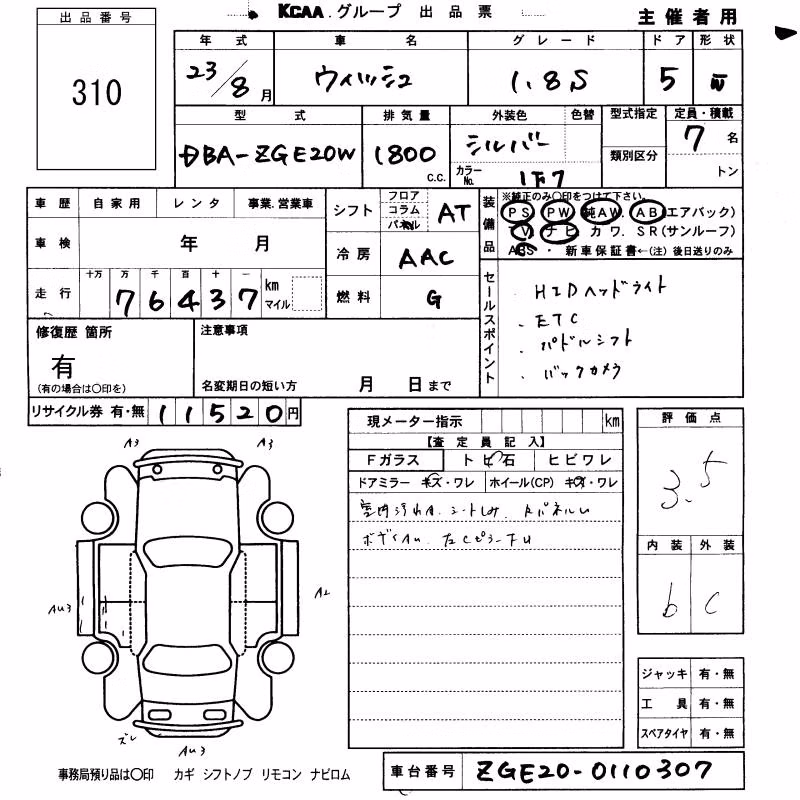 KCAA.グループ 出品票
主催者用
出品番号
310
年式 車名 グレード ドア 形状
23/8月 ウィッシュ 1.8S 5
型式 排気量 外装色 色替 型式指定 定員・積載
DBA-ZGE20W 1800 c.c. シルバー 7名
カラーNo. 1F7 類別区分 トン
車歴 自家用 レンタ 事業.営業車
車検 年 月
走行 十万 万 千 百 十 一
76437 km マイル
シフト フロア コラム パネル AT
冷房 AAC
燃料 G
装備品
※純正のみ○印をつけて下さい。
PS PW 純AW. AB(エアバック)
TV ナビ カワ. SR(サンルーフ)
ABS ・ 新車保証書←(注)後日送りのみ
セールスポイント
. HIDヘッドライト
. ETC
. パドルシフト
. バックカメラ
修復歴 箇所
有
(有の場合は○印を)
注意事項
名変期日の短い方 月 日まで
リサイクル券 有・無 11520円
現メーター指示 km
【査定員記入】
Fガラス トビ石 ヒビワレ
ドアミラー キズ・ワレ ホイール(CP) キズ・ワレ
室内汚れA. シートしみ.
評価点
3.5
内装 外装
b c
A3 A3
AU3 A2
ズレ AU3
ジャッキ 有・無
工具 有・無
スペアタイヤ 有・無
事務局預り品は○印 カギ シフトノブ リモコン ナビロム
車台番号 ZGE20-0110307